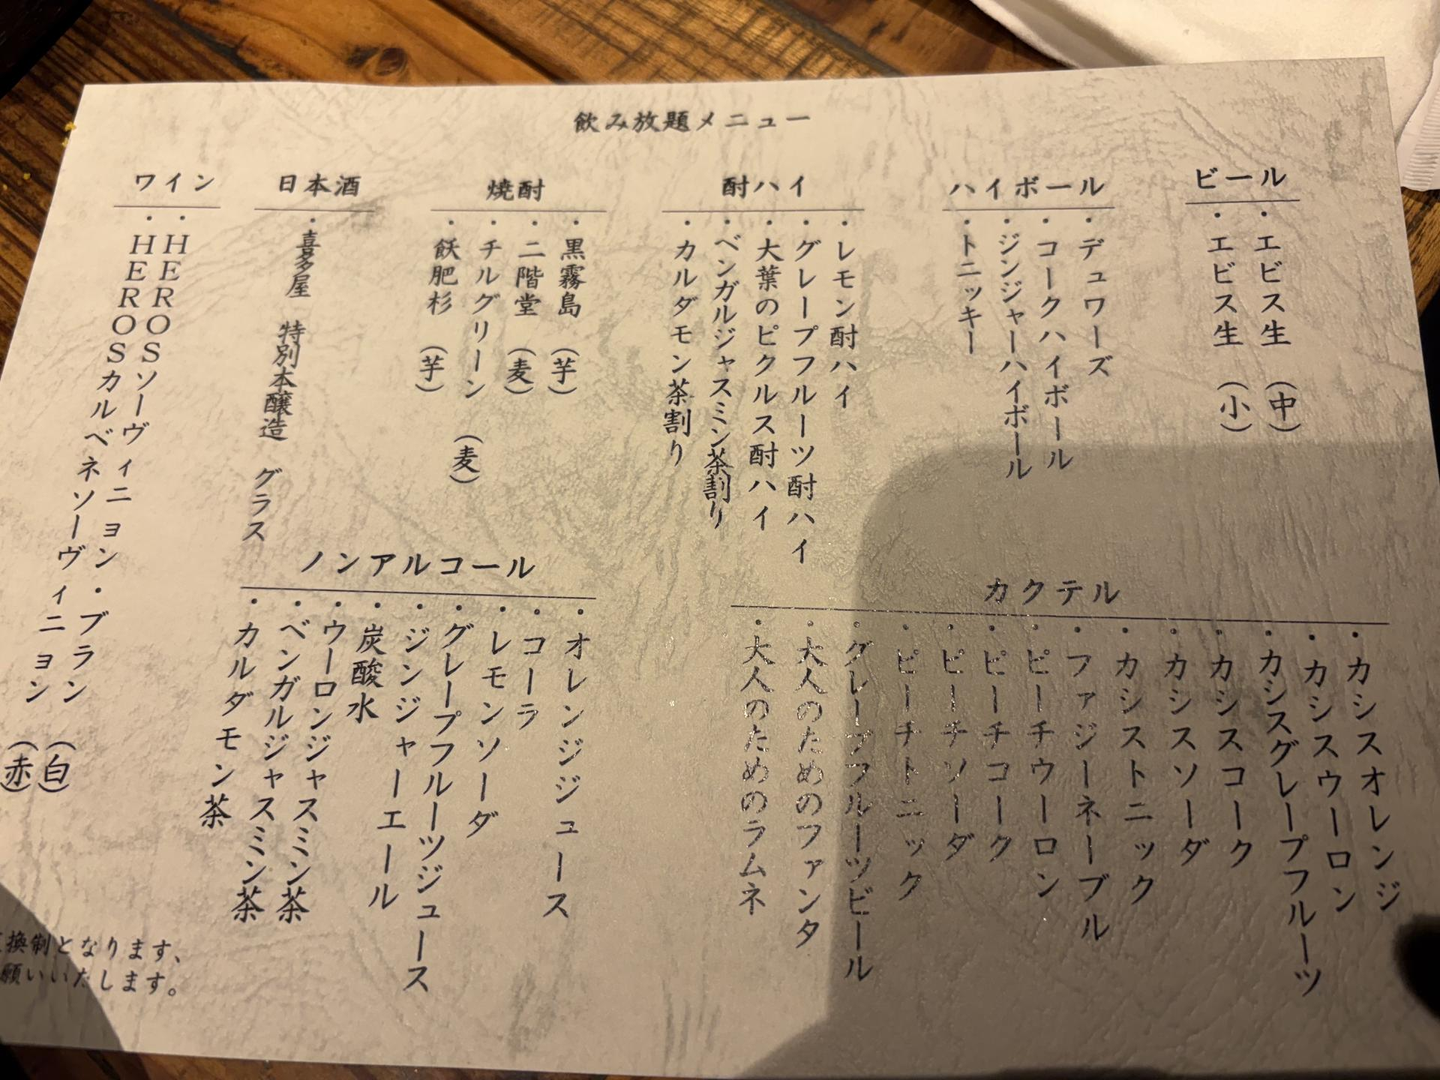 飲み放題メニュー
ビール
・エビス生（中）
・エビス生（小）
ハイボール
・デュワーズ
・コークハイボール
・ジンジャーハイボール
・トニッキー
酎ハイ
・レモン酎ハイ
・グレープフルーツ酎ハイ
・大葉のピクルス酎ハイ
・ベンガルジャスミン茶割り
・カルダモン茶割り
焼酎
・黒霧島（芋）
・二階堂（麦）
・チルグリーン（麦）
・飫肥杉（芋）
日本酒
・喜多屋　特別本醸造　グラス
ワイン
・HEROSソーヴィニョン・ブラン（白）
・HEROSカルベネソーヴィニョン（赤）
カクテル
・カシスオレンジ
・カシスウーロン
・カシスグレープフルーツ
・カシスコーク
・カシスソーダ
・カシストニック
・ファジーネーブル
・ピーチウーロン
・ピーチコーク
・ピーチソーダ
・ピーチトニック
・グレープフルーツビール
・大人のためのファンタ
・大人のためのラムネ
ノンアルコール
・オレンジジュース
・コーラ
・レモンソーダ
・グレープフルーツジュース
・ジンジャーエール
・炭酸水
・ウーロンジャスミン茶
・ベンガルジャスミン茶
・カルダモン茶
換制となります、
願いいたします。